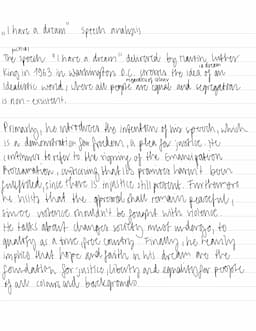 "I have a dream" speech analysis
The speech "I have a dream" delivered by Martin Luther
King in 1963 in Washington D.C. the idea of an
idealistic world, where all people are equal and segregation
is non-existent.
Primarily, he introduces the intentions of his speech, which
is a demonstration for freedom, a plea for justice. He
continues to refer to the signing of the Emancipation
Proclamation, criticising that its promises haven't been
fulfilled, since there is injustice still present. Furthermore
he insists that the uproar shall remain peaceful,
since violence shouldn't be fought with violence.
He talks about changes society must undergo, to
qualify as a true, free country. Finally, he
implies that hope and faith in his dream are the
foundation for justice, liberty and equality for people
of all colours and backgrounds.